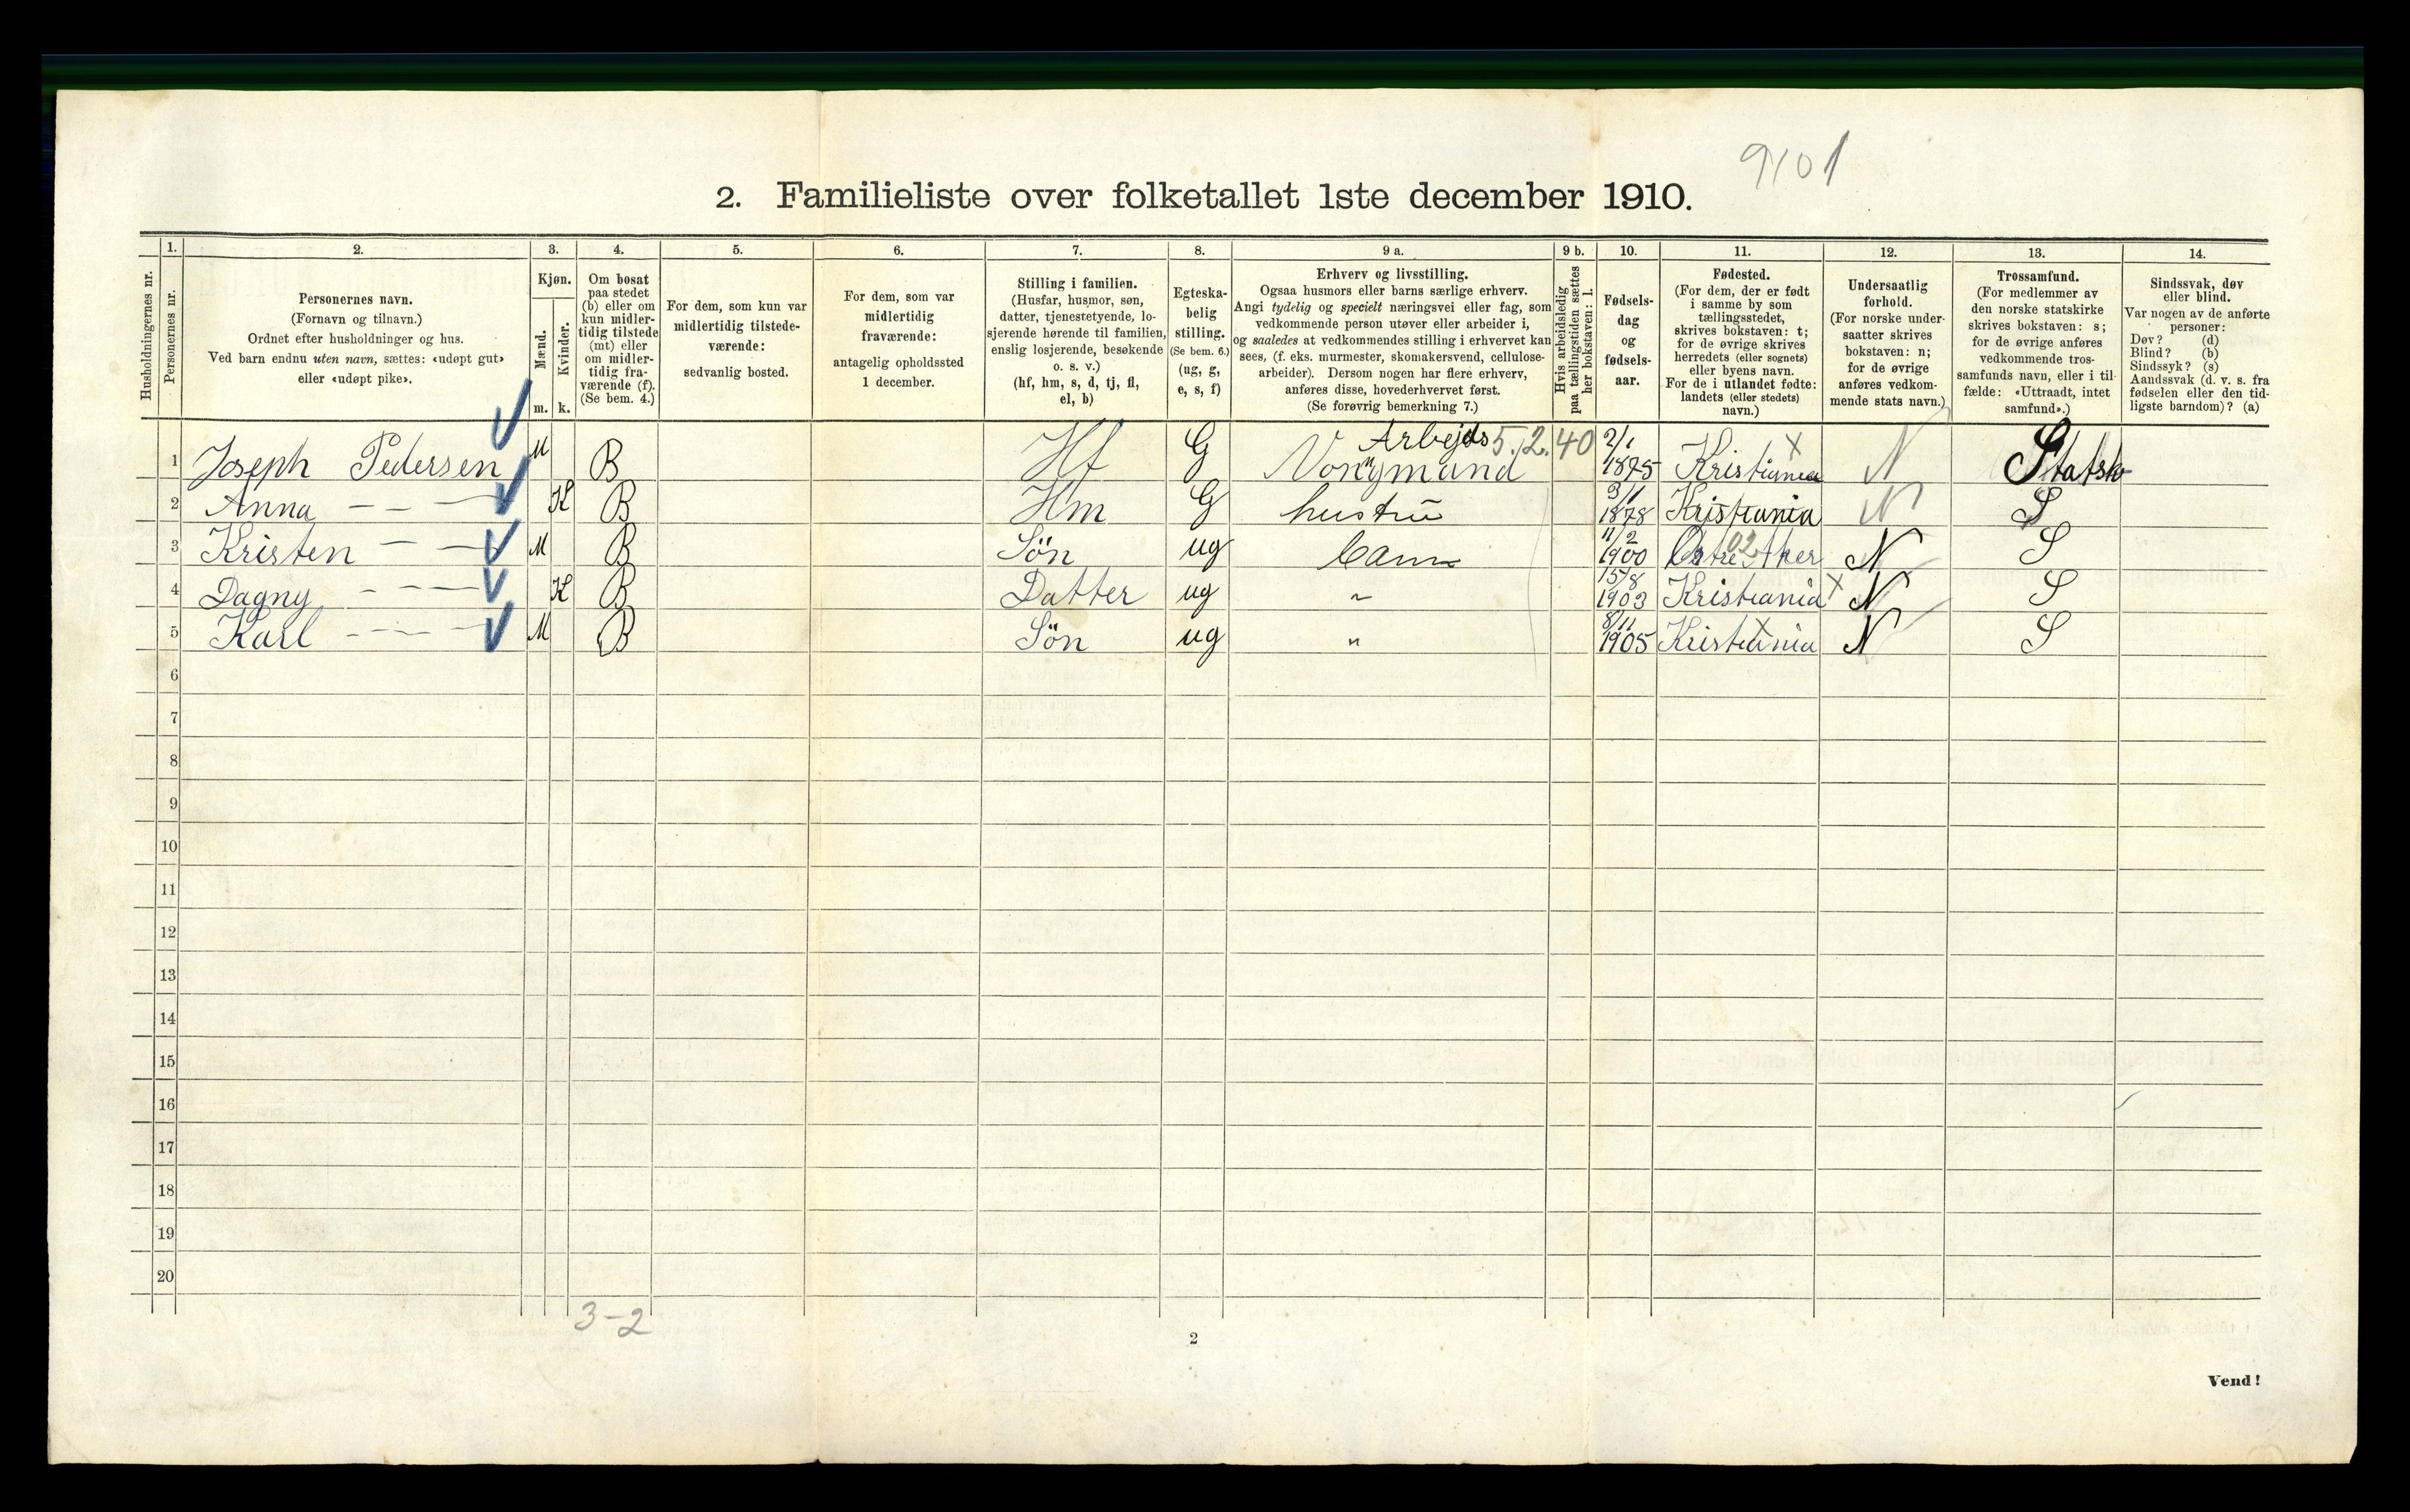 9101
2. Familieliste over folketallet 1ste december 1910.
Husholdningernes nr.
1.
Personernes nr.
2.
Personernes navn.
(Fornavn og tilnavn.)
Ordnet efter husholdninger og hus.
Ved barn endnu uten navn, sættes: «udøpt gut»
eller «udøpt pike».
3.
Kjøn.
Mænd.
Kvinder.
m.
k.
4.
Om bosat
paa stedet
(b) eller om
kun midler-
tidig tilstede
(mt) eller
om midler-
tidig fra-
værende (f).
(Se bem. 4.)
5.
For dem, som kun var
midlertidig tilstede-
værende:
sedvanlig bosted.
6.
For dem, som var
midlertidig
fraværende:
antagelig opholdssted
1 december.
7.
Stilling i familien.
(Husfar, husmor, søn,
datter, tjenestetyende, lo-
sjerende hørende til familien,
enslig losjerende, besøkende
o. s. v.)
(hf, hm, s, d, tj, fl,
el, b)
8.
Egteska-
belig
stilling.
(Se bem. 6.)
(ug, g,
e, s, f)
9 a.
Erhverv og livsstilling.
Ogsaa husmors eller barns særlige erhverv.
Angi tydelig og specielt næringsvei eller fag, som
vedkommende person utøver eller arbeider i,
og saaledes at vedkommendes stilling i erhvervet kan
sees, (f. eks. murmester, skomakersvend, cellulose-
arbeider). Dersom nogen har flere erhverv,
anføres disse, hovederhvervet først.
(Se forøvrig bemerkning 7.)
9 b.
Hvis arbeidsledig
paa tællingstiden sættes
her bokstaven: l.
10.
Fødsels-
dag
og
fødsels-
aar.
11.
Fødested.
(For dem, der er født
i samme by som
tællingsstedet,
skrives bokstaven: t;
for de øvrige skrives
herredets (eller sognets)
eller byens navn.
For de i utlandet fødte:
landets (eller stedets)
navn.)
12.
Undersaatlig
forhold.
(For norske under-
saatter skrives
bokstaven: n;
for de øvrige
anføres vedkom-
mende stats navn.)
13.
Trossamfund.
(For medlemmer av
den norske statskirke
skrives bokstaven: s;
for de øvrige anføres
vedkommende tros-
samfunds navn, eller i til-
fælde: «Uttraadt, intet
samfund».)
14.
Sindssvak, døv
eller blind.
Var nogen av de anførte
personer:
Døv? (d)
Blind? (b)
Sindssyk? (s)
Aandssvak (d. v. s. fra
fødselen eller den tid-
ligste barndom)? (a)
1 Joseph Pedersen M B Hf G Arbejds 5.12.40 2/1 1875 Kristiania N Statsk
2 Anna — — — K B Hm G hustru 3/1 1878 Kristiania N S
3 Kristen — — M B Søn ug 11/2 1900 Østre Aker 02 N S
4 Dagny - - — K B Datter ug " 15/8 1903 Kristiania N S
5 Karl - - — M B Søn ug " 8/11 1905 Kristiania N S
6
7
8
9
10
11
12
13
14
15
16
17
18
19
20
3-2
2
Vend!